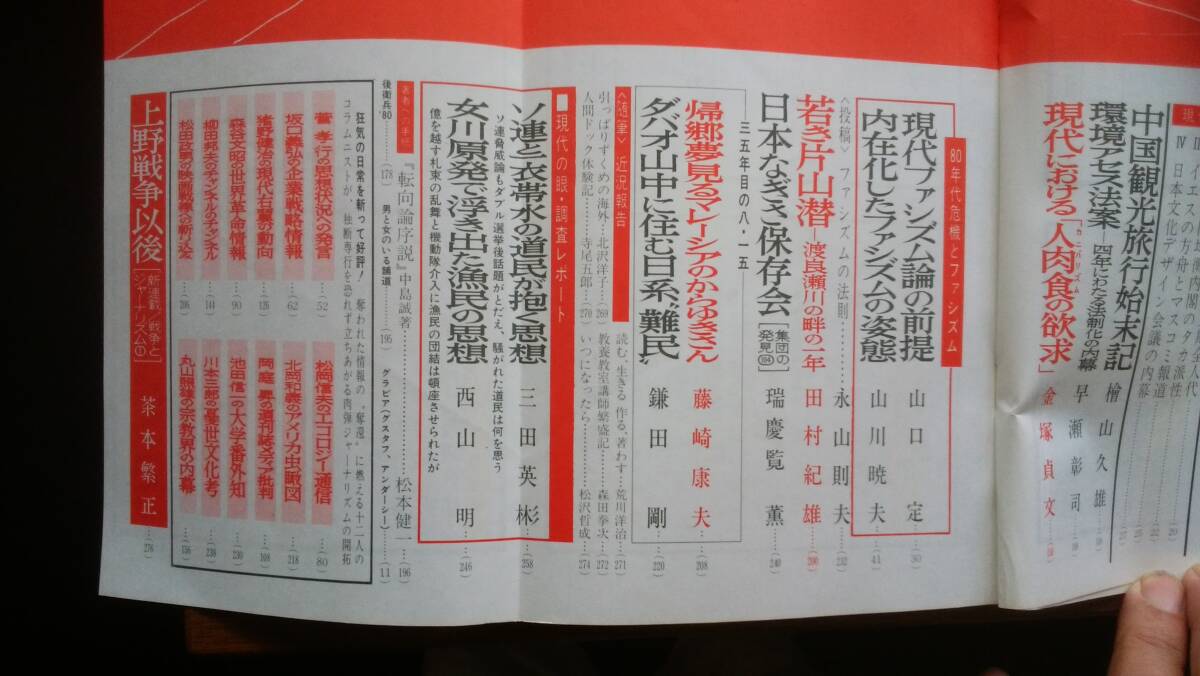 Ⅳ 日本文化デザイン会議の内幕
中国観光旅行始末記 檜山久雄
環境アセス法案 四年にわたる法制化の内幕 早瀬彰司
現代における「人肉食の欲求」 金塚貞文
カニバリズム
80年代危機とファシズム
現代ファシズム論の前提 山口定 (30)
内在化したファシズムの姿態 山川暁夫 (41)
〈投稿〉ファシズムの法則 永山則夫 (232)
若き片山潜 ―渡良瀬川の畔の一年 田村紀雄 (200)
日本なぎさ保存会 [集団の発見] 瑞慶覧薫 (240)
三五年目の八・一五
帰郷夢見るマレーシアのからゆきさん 藤崎康夫 (208)
ダバオ山中に住む日系〝難民〟 鎌田剛 (220)
〈随筆〉近況報告
引っぱりずくめの海外 北沢洋子 (269)
人間ドック体験記 寺尾五郎 (270)
読む、生きる 作る、著わす 荒川洋治 (271)
教養教室講師繁盛記 森田拳次 (272)
いつになったら 松沢哲成 (274)
■現代の眼・調査レポート
ソ連と一衣帯水の道民が抱く思想 三田英彬 (258)
ソ連脅威論もダブル選挙後話題がとだえ、騒がれた道民は何を思う
女川原発で浮き出た漁民の思想 西山明 (246)
億を越す札束の乱舞と機動隊介入に漁民の団結は頓座させられたが
著者への手紙 『転向論序説』中島誠著 松本健一 (196)
後衛兵'80 (178)
男と女のいる舗道 (195)
グラビア(グスタフ、アンダーシー) (11)
狂気の日常を斬って好評! 奪われた情報の〝奪還〟に燃える十二人の
コラムニストが、独断専行を恐れず立ちあがる肉弾ジャーナリズムの開拓
菅孝行の思想状況への発言 (52)
坂口義弘の企業戦戦情報 (62)
猪野健治の現代右翼の動向 (126)
森詠文昭の世界革命情報 (90)
柳田邦夫のチャンネルのチャンネル (144)
松田政男の映画戦線への斬り込み (206)
松岡信夫のエコロジー通信 (80)
北岡和義のアメリカ虫瞰図 (218)
岡庭昇の週刊誌メディア批判 (108)
池田信一の大学番外知 (230)
川本三郎の暮世文化考 (238)
丸山照雄の宗教界の内幕 (156)
上野戦争以後 [新連載/戦争とジャーナリズム①] 茶本繁正 (276)